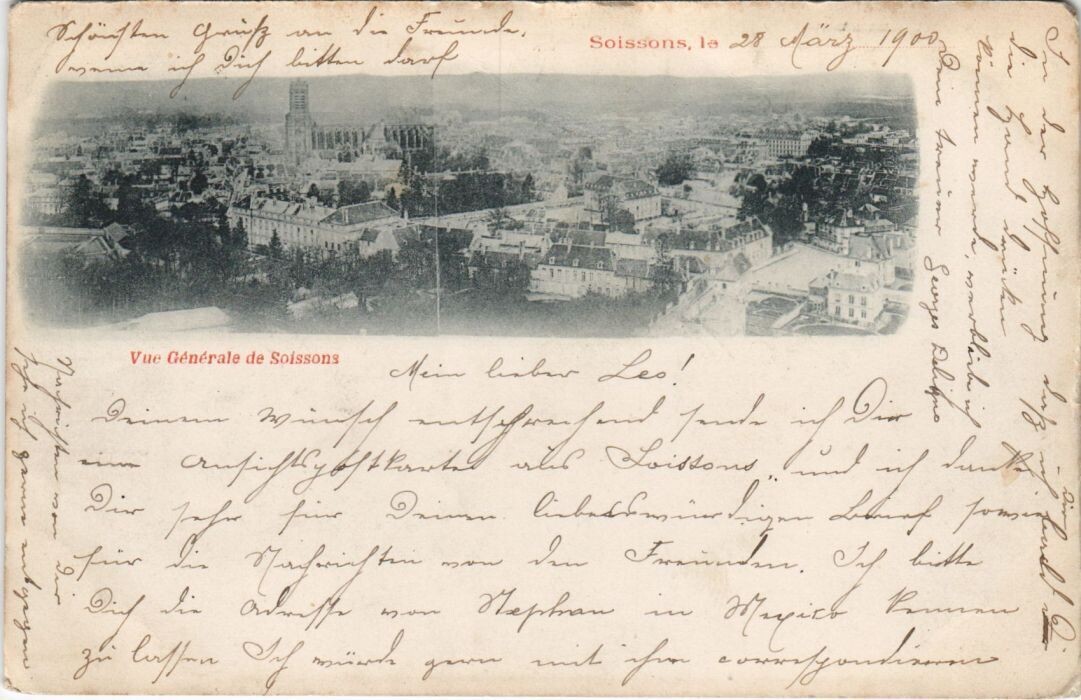 Schönsten Grüß an die Freunde,
wenn ich Dich bitten darf
Soissons, le 28 März 1900
Vue Générale de Soissons
Mein lieber Leo!
Deinem Wunsch entsprechend sende ich Dir
eine Ansichtspostkarte aus „Soissons" und ich danke
Dir sehr für Deinen liebenswürdigen Brief sowie
für die Nachrichten von den Freunden. Ich bitte
Dich die Adresse von Stephan in Mexiko kennen
zu lassen Ich würde gern mit ihm correspondieren
Nachrichten von Dir
sehe ich gerne entgegen
In der Hoffnung daß ich bald Dir
die Hand drücken
können werde, verbleibe ich
Dein treuer Georges